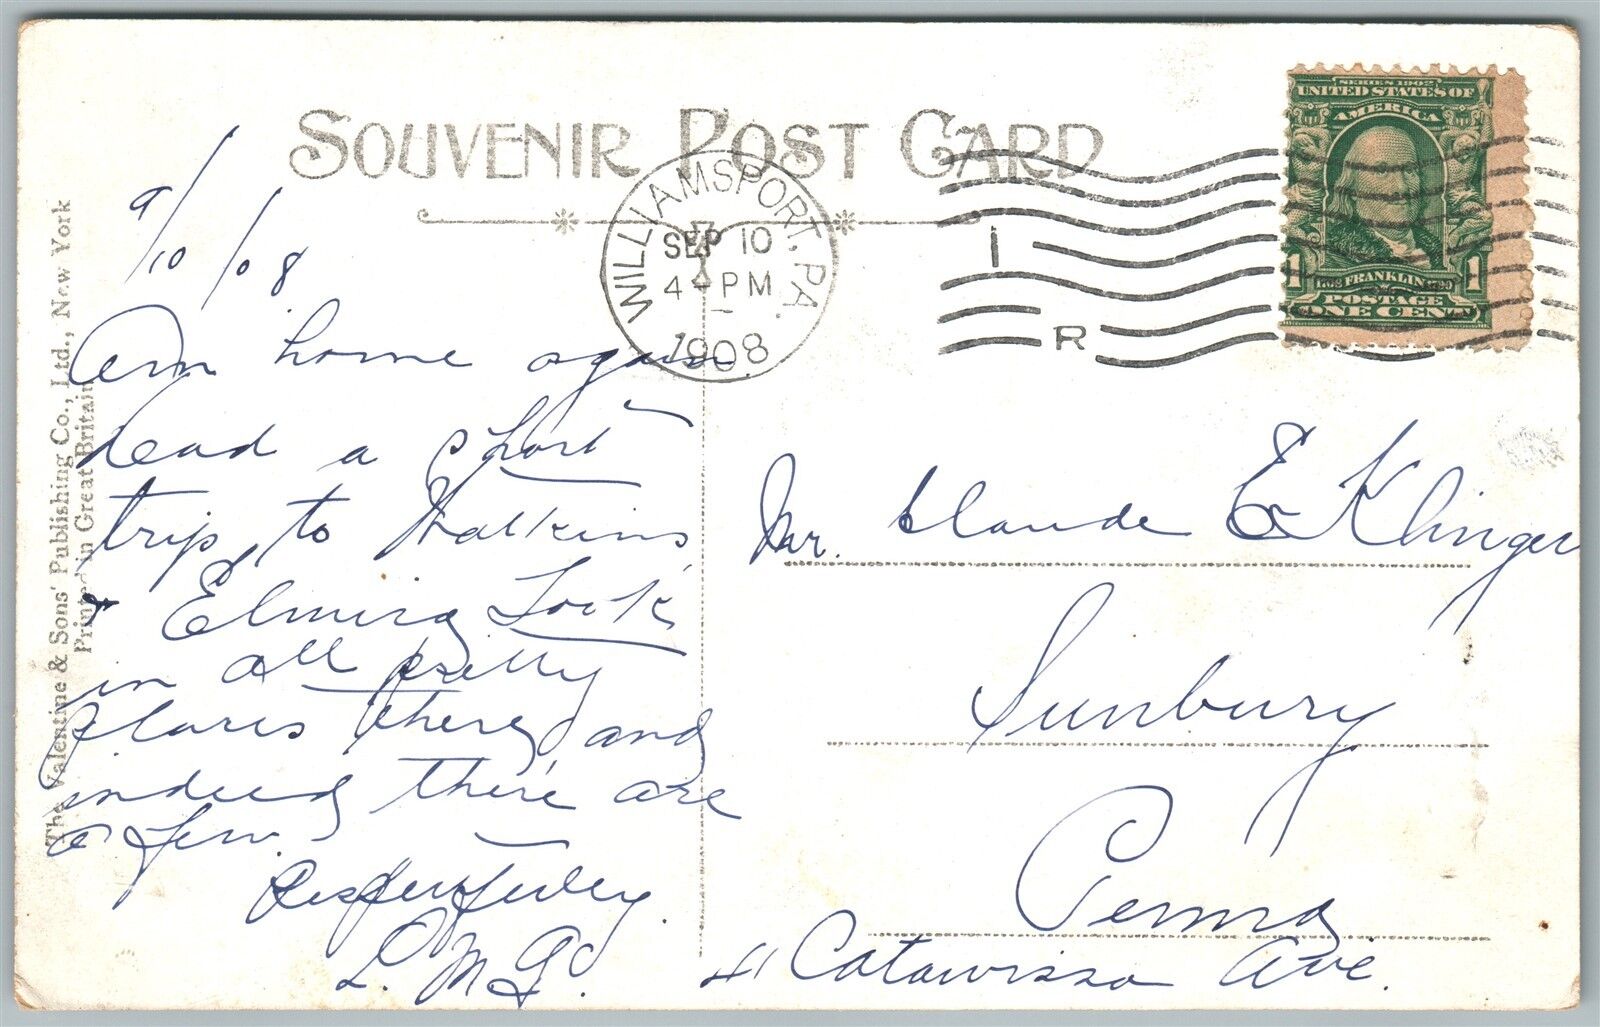 SOUVENIR POST CARD
WILLIAMSPORT, PA.
SEP 10
4-PM
1908
1
R
SERIES 1902
UNITED STATES OF
AMERICA
FRANKLIN
POSTAGE
1 1
ONE CENT
9/10/08
Am home again
had a short
trip to Watkins,
& Elmira Took
in all pretty
places there and
indeed there are
a few.
Respectfully
L. M. G.
Mr. Claude E Klinger
Sunbury
Penna
41 Catawissa Ave.
The Valentine & Sons' Publishing Co., Ltd., New York
Printed in Great Britain